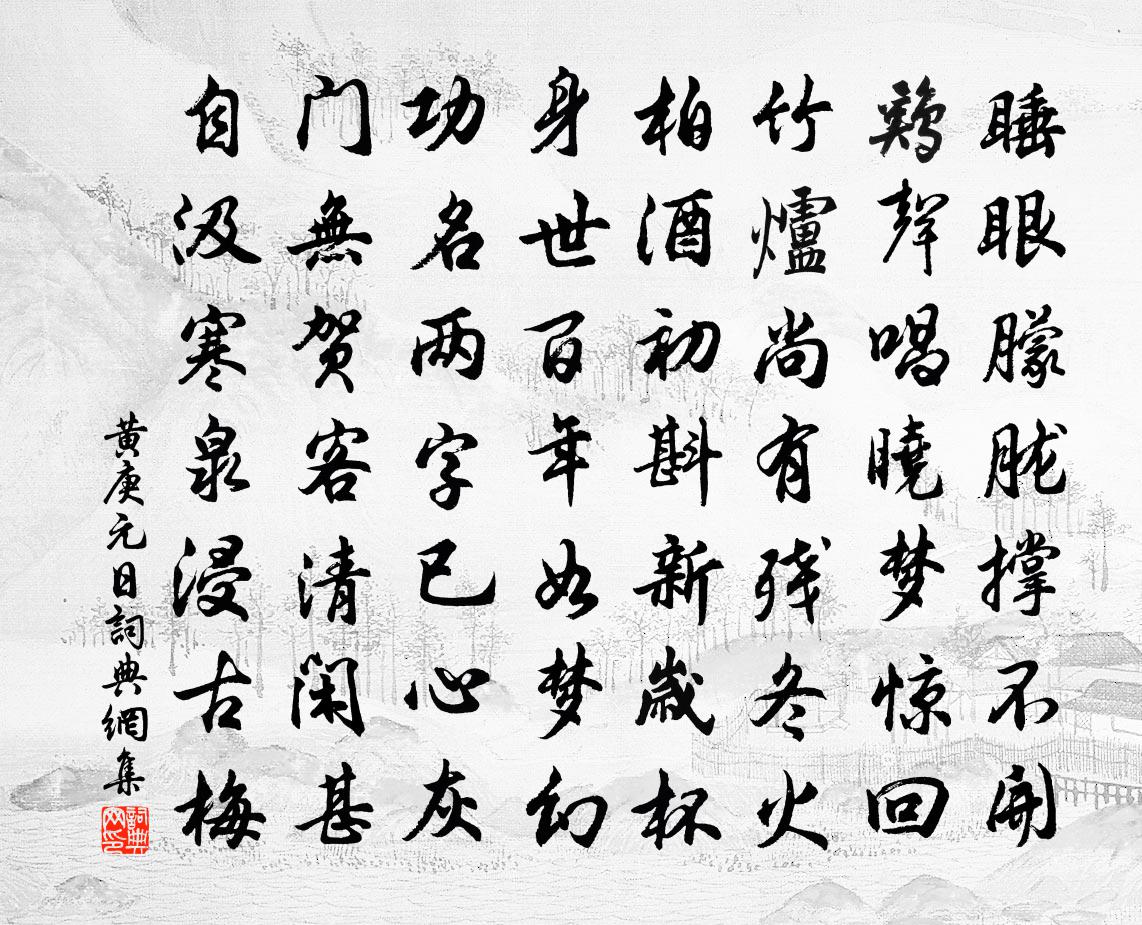 睡眼朦胧撑不開
鷄聲唱曉梦惊回
竹爐尚有残冬火
柏酒初斟新歲杯
身世百年如梦幻
功名两字已心灰
门無贺客清闲甚
自汲寒泉浸古梅
黄庚元日詞典網集
詞典網印